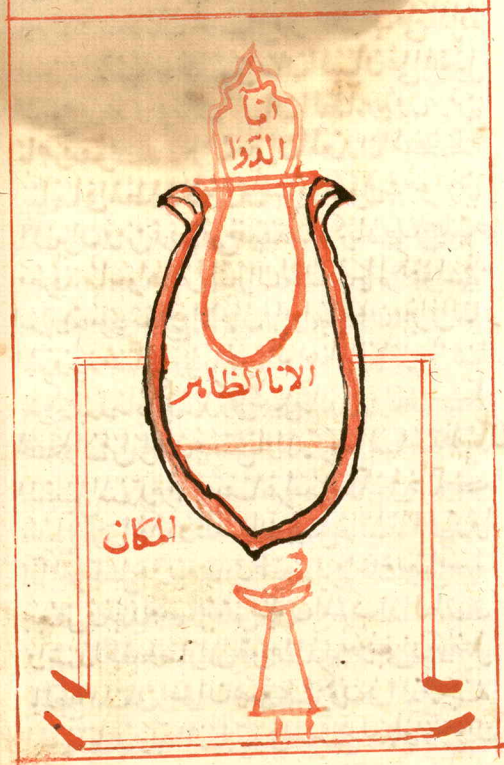 انآ
الدّوا
الانا الظاهر
المكان